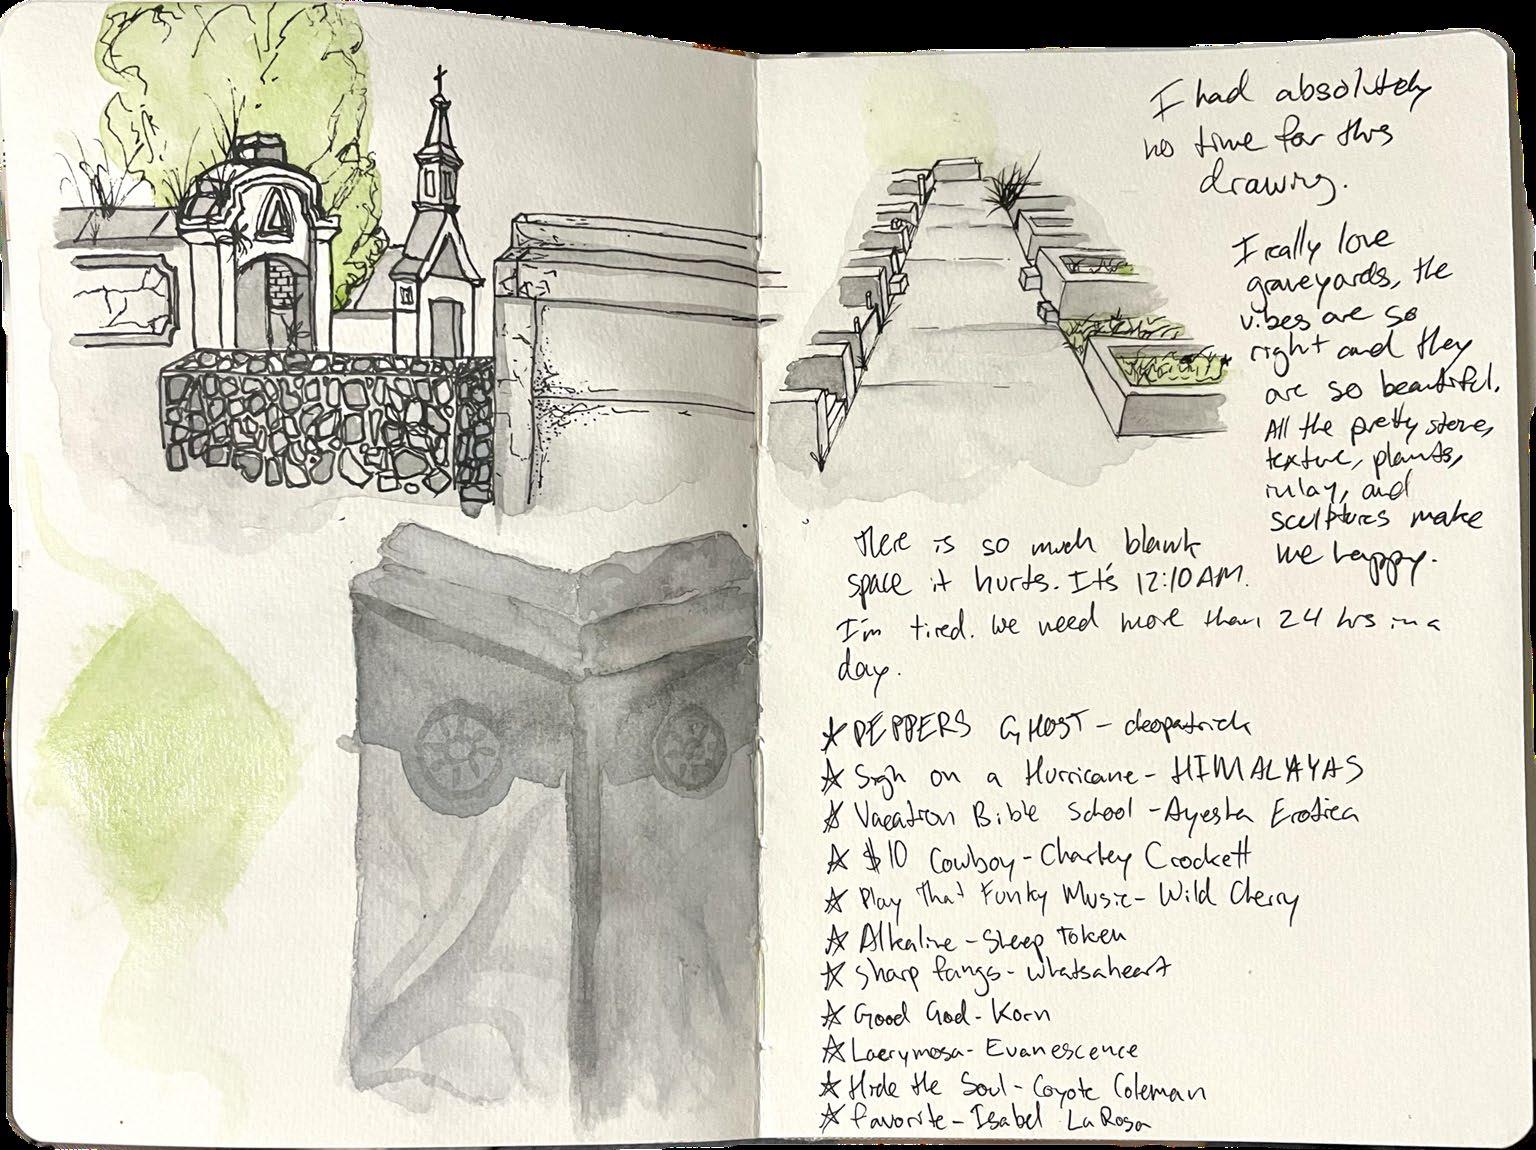 I had absolutely
no time for this
drawing.
I really love
graveyards, the
vibes are so
right and they
are so beautiful.
All the pretty stones,
texture, plants,
inlay, and
sculptures make
me happy.
There is so much blank
space it hurts. It's 12:10 AM.
I'm tired. We need more than 24 hrs in a
day.
☆ PEPPERS GHOST - cleopatrick
☆ Sigh on a Hurricane - HIMALAYAS
☆ Vacation Bible School - Ayesha Erotica
☆ $10 Cowboy - Charley Crockett
☆ Play That Funky Music - Wild Cherry
☆ Alkaline - Sleep Token
☆ Sharp fangs - whatsaheart
☆ Good God - Korn
☆ Lacrymosa - Evanescence
☆ Hide the Soul - Coyote Coleman
☆ favorite - Isabel LaRosa